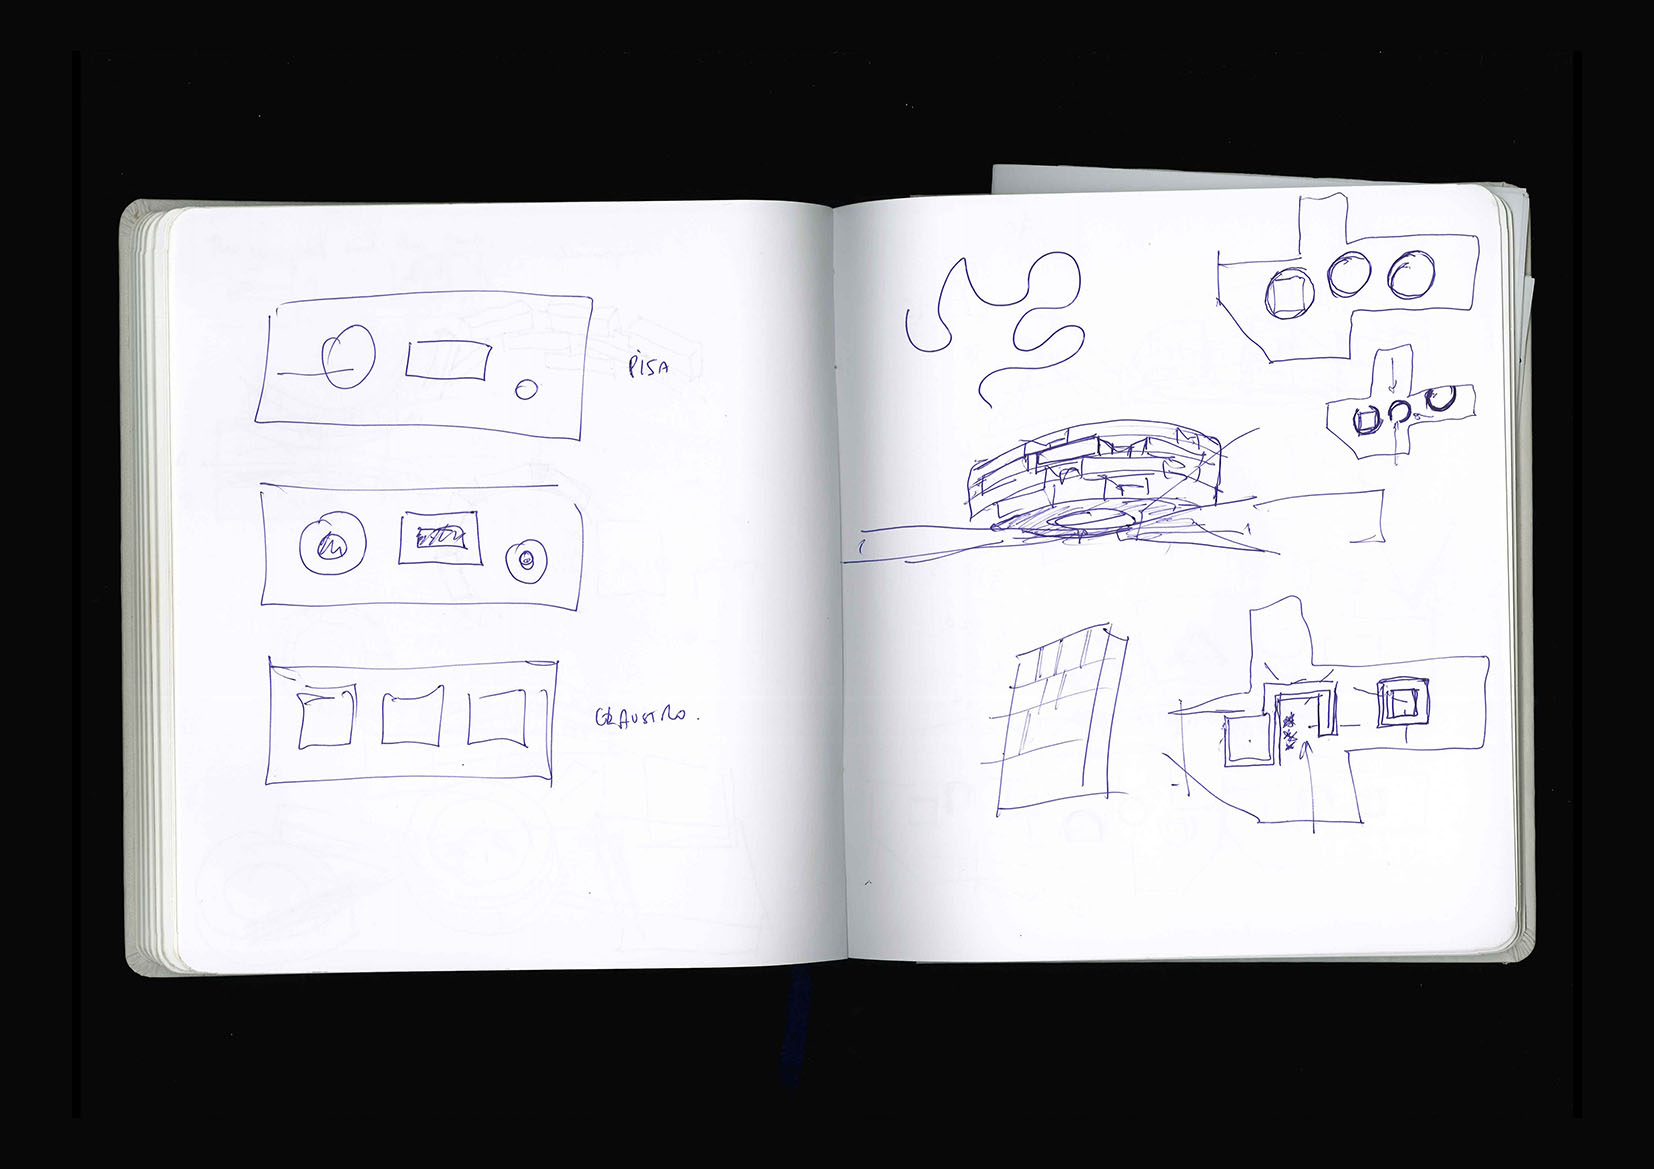 PISA
CLAUSTRO.